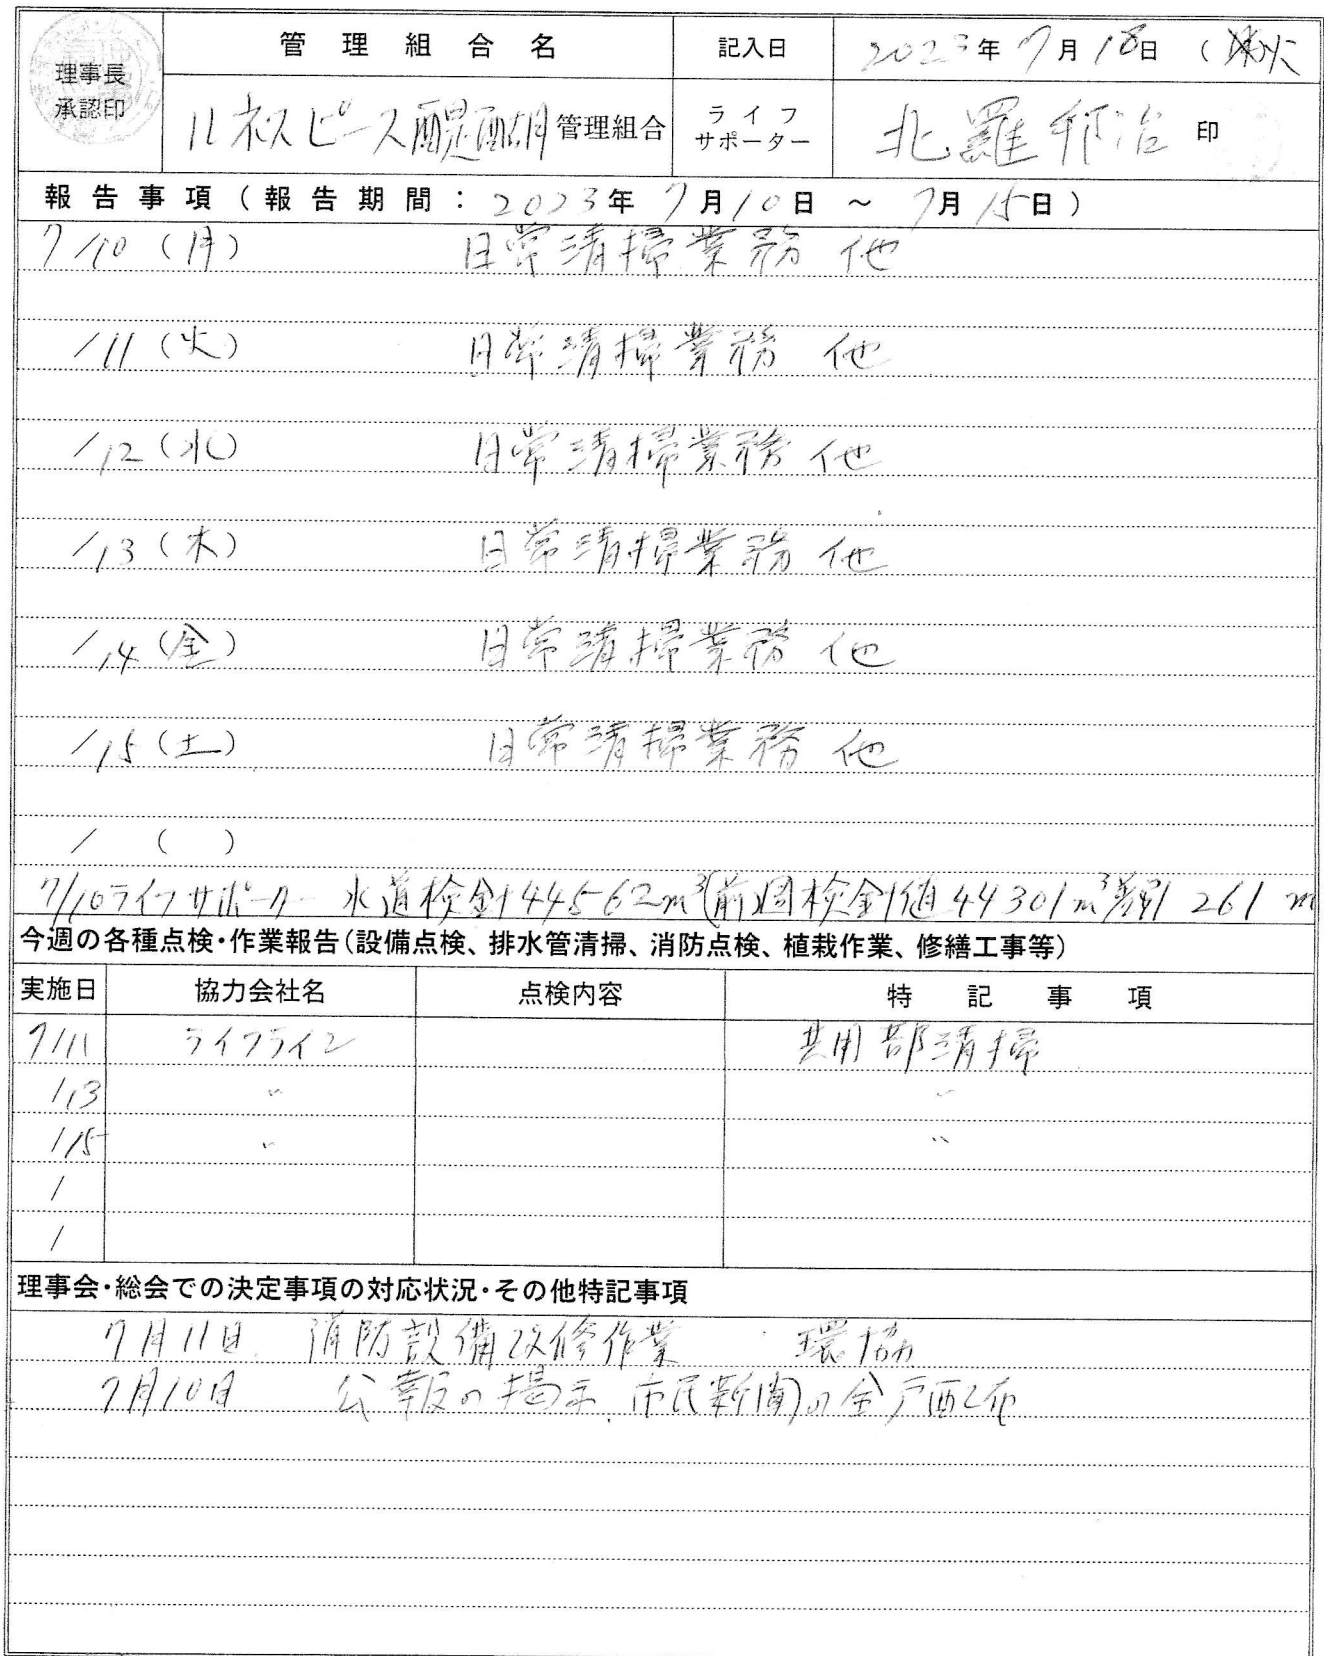 理事長
承認印
管理組合名
記入日
2023年 7月 18日 (火
ルネスピース醍醐管理組合
ライフ
サポーター
北羅邦治 印
報告事項(報告期間: 2023年 7月10日 ~ 7月15日)
7/10 (月) 日常清掃業務 他
/11 (火) 日常清掃業務 他
/12 (水) 日常清掃業務 他
/13 (木) 日常清掃業務 他
/14 (金) 日常清掃業務 他
/15 (土) 日常清掃業務 他
/ ( )
7/10ライフサポーター 水道検針44562m³(前週検針値44301m³差引 261 m
今週の各種点検・作業報告(設備点検、排水管清掃、消防点検、植栽作業、修繕工事等)
実施日 協力会社名 点検内容 特記事項
7/11 ライフライン 共用部清掃
/13 〃 〃
/15 〃 〃
/
/
理事会・総会での決定事項の対応状況・その他特記事項
7月11日 消防設備改修作業 環協
7月10日 公報の掲示、市民新聞の全戸配布